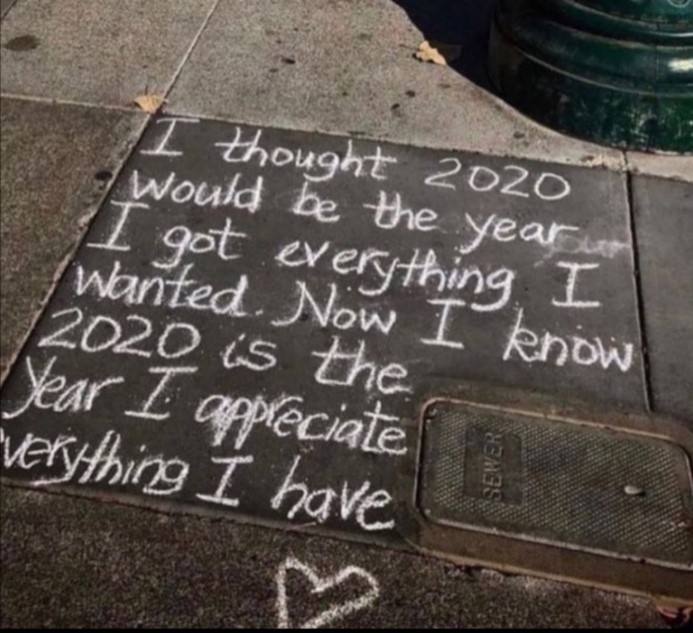 I thought 2020
would be the year
I got everything I
wanted. Now I know
2020 is the
year I appreciate
verything I have
SEWER